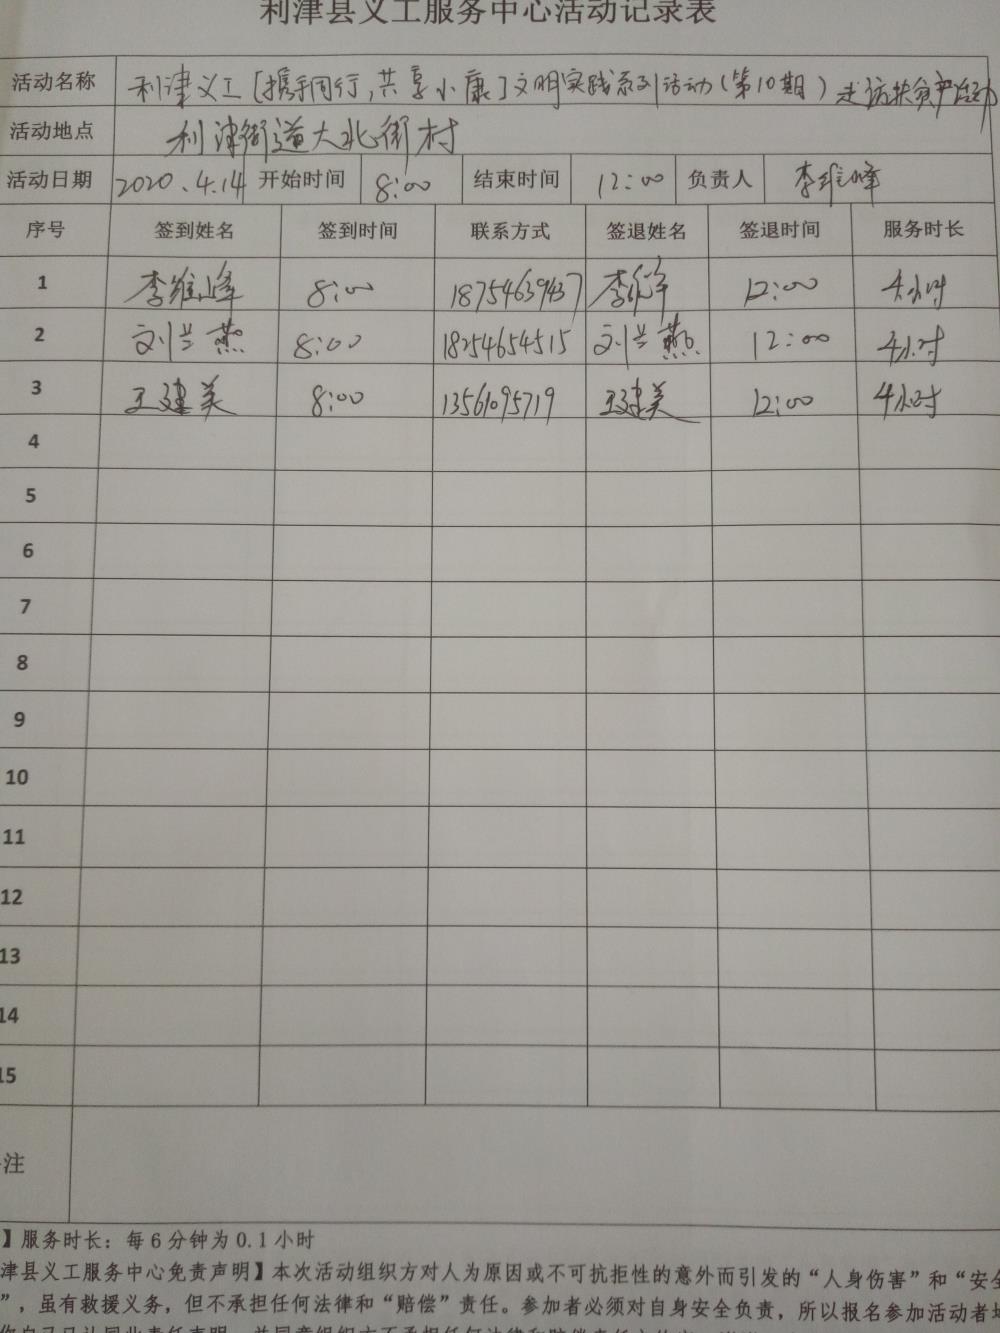 利津县义工服务中心活动记录表
活动名称 利津义工[携手同行,共享小康]文明实践系列活动(第10期)走访扶贫户活动
活动地点 利津街道大北街村
活动日期 2020.4.14 开始时间 8:00 结束时间 12:00 负责人 李维峰
序号 签到姓名 签到时间 联系方式 签退姓名 签退时间 服务时长
1 李维峰 8:00 18754639437 李维峰 12:00 4小时
2 刘兰燕 8:00 18254654515 刘兰燕 12:00 4小时
3 王建美 8:00 13561095719 王建美 12:00 4小时
4
5
6
7
8
9
10
11
12
13
14
15
注
】服务时长：每6分钟为0.1小时
津县义工服务中心免责声明】本次活动组织方对人为原因或不可抗拒性的意外而引发的“人身伤害”和“安全
”，虽有救援义务，但不承担任何法律和“赔偿”责任。参加者必须对自身安全负责，所以报名参加活动者均